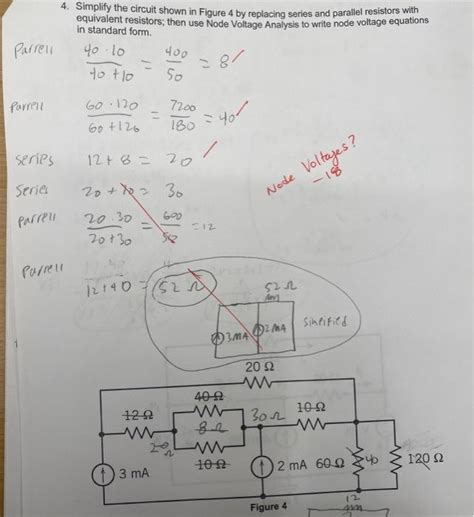 4. Simplify the circuit shown in Figure 4 by replacing series and parallel resistors with
equivalent resistors; then use Node Voltage Analysis to write node voltage equations
in standard form.
Parrell 40 · 10 / 40 + 10 = 400 / 50 = 8
Parrell 60 · 120 / 60 + 120 = 7200 / 180 = 40
series 12 + 8 = 20
Node Voltages?
-18
Series 20 + 10 = 30
parrell 20 · 30 / 20 + 30 = 600 / 50 = 12
Parrell 12 + 40 = 52 Ω
52 Ω
3 MA 2 MA Simplified
20 Ω
40 Ω
12 Ω 8 Ω 30 Ω 10 Ω
20 Ω
10 Ω
3 mA 2 mA 60 Ω 40 120 Ω
12
Figure 4